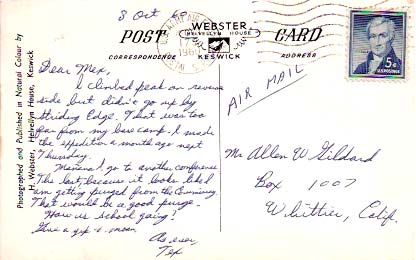 3 Oct
POST
CORRESPONDENCE
WEBSTER
HELVELLYN HOUSE
KESWICK
CARD
ADDRESS
Photographed and Published in Natural Colour by
H. Webster, Helvellyn House, Keswick
AIR MAIL
5¢
U.S. POSTAGE
Dear Mex,
I climbed peak on reverse
side but didn't go up by
Striding Edge. That was too
far from my base camp. I made
the expedition a month ago next
Thursday.
Mañana I go to another conference.
The last, because it looks like I
am getting purged from the
That would be a good purge.
How is school going?
Give a to mom.
As ever,
Tex
Mr Allen W Gildard
Box 1007
Whittier, Calif.